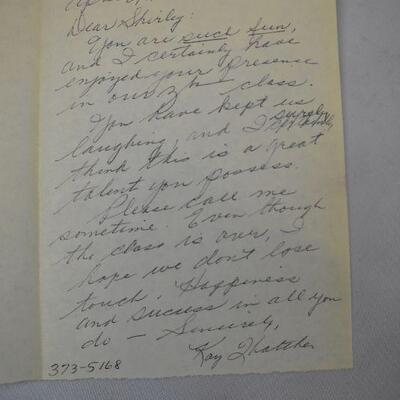 Dear Shirley:
You are such fun,
and I certainly have
enjoyed your presence
in our class.
You have kept us
laughing, and I surely
think this is a great
talent you possess.
Please call me
sometime. Even though
the class is over, I
hope we don't lose
touch. Happiness
and success in all you
do — Sincerely,
Kay Thatcher
373-5168